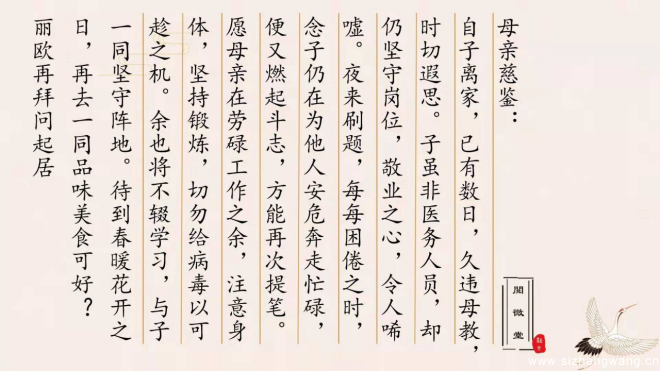 母亲慈鉴：
自子离家，已有数日，久违母教，
时切遐思。子虽非医务人员，却
仍坚守岗位，敬业之心，令人唏
嘘。夜来刷题，每每困倦之时，
念子仍在为他人安危奔走忙碌，
便又燃起斗志，方能再次提笔。
愿母亲在劳碌工作之余，注意身
体，坚持锻炼，切勿给病毒以可
趁之机。余也将不辍学习，与子
一同坚守阵地。待到春暖花开之
日，再去一同品味美食可好？
丽欧再拜问起居
閱微堂
www.sizhengwang.cn